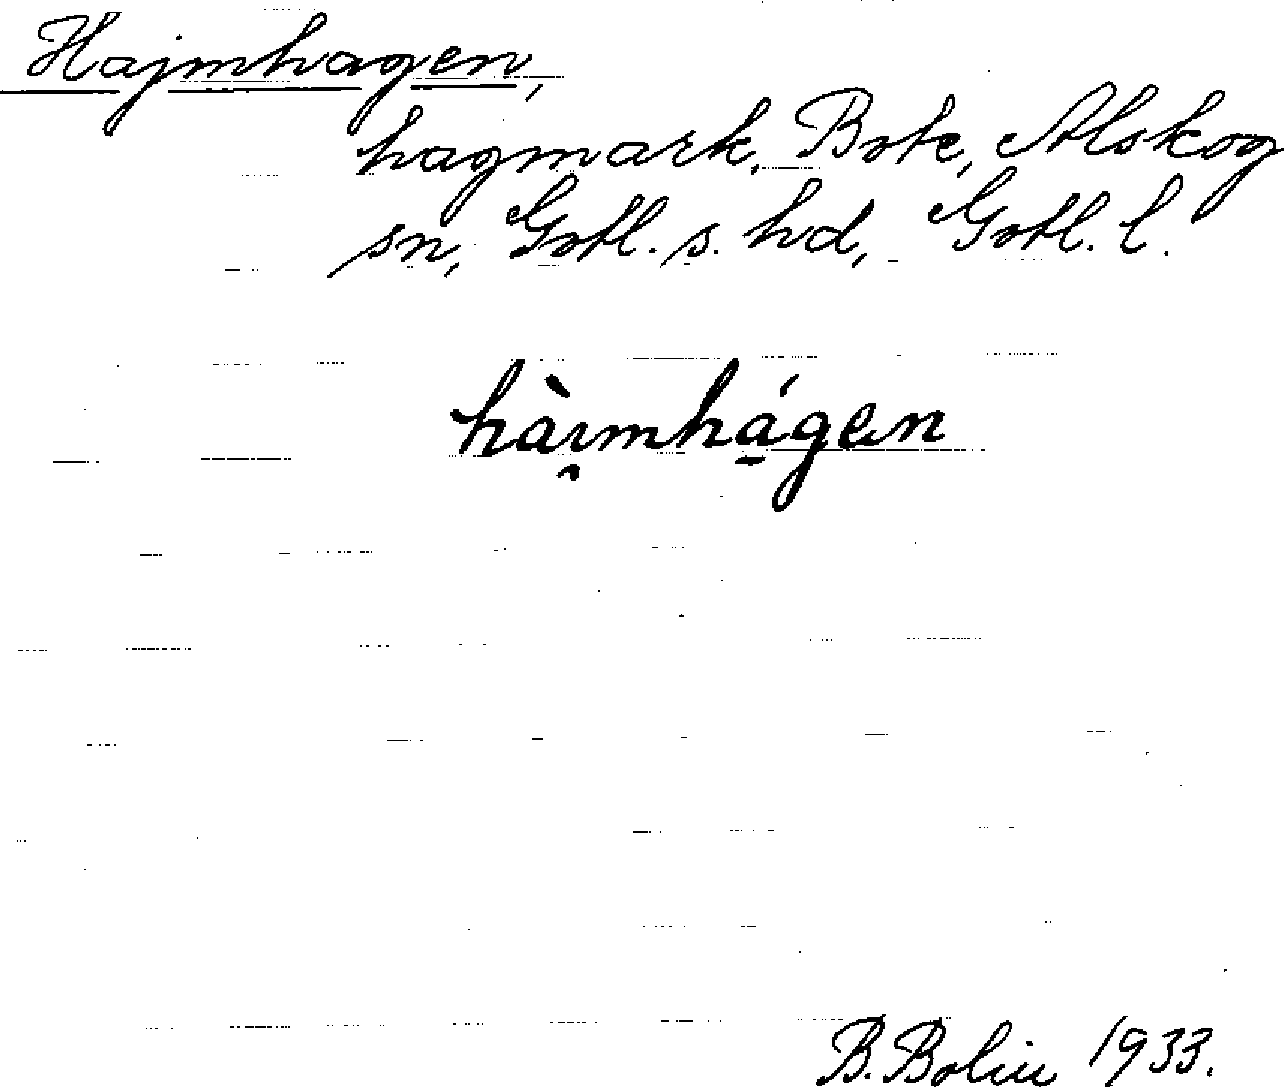 Hajmhagen,
hagmark, Bote, Alskog
sn, Gotl. s. hd, Gotl. l.
hàı̯mhá̱gen
B. Bolin 1933.